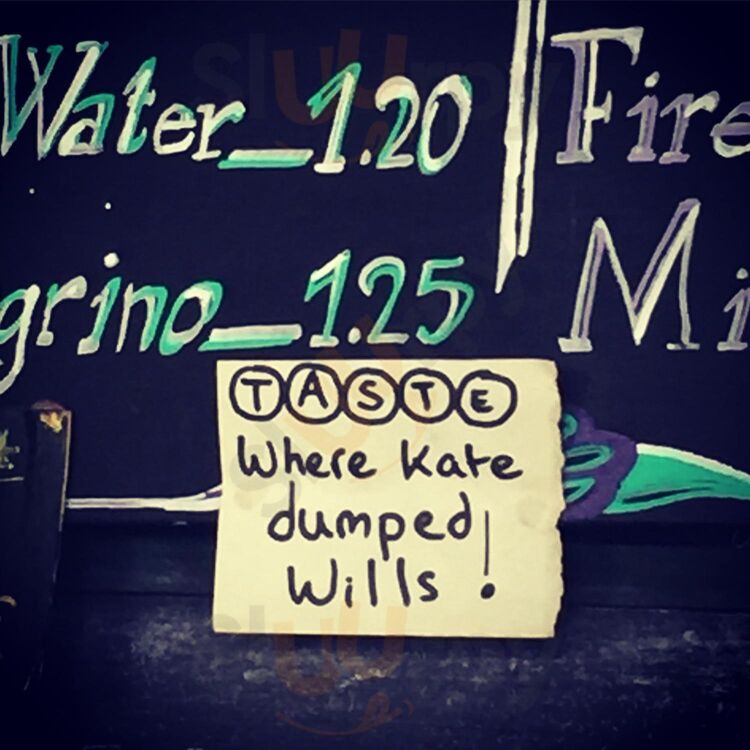 Water_1.20
Fire
grino_1.25
Mi
TASTE
Where Kate
dumped
Wills!